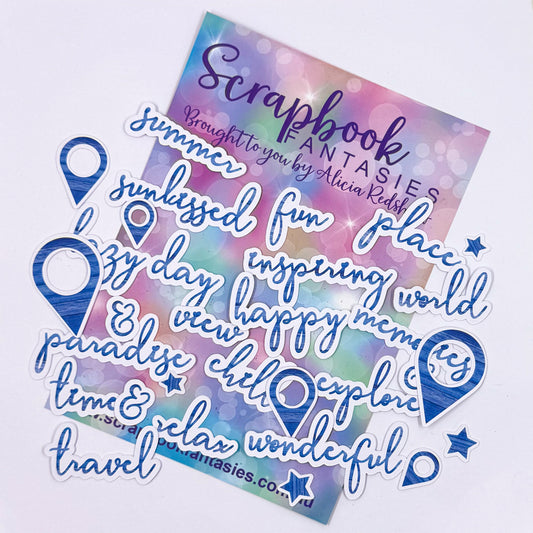 Scrapbook
FANTASIES
Brought to you by Alicia Redsh
summer
sunkissed fun place
lazy day inspiring world
& view happy memories
paradise chill explore
time & relax wonderful
travel
www.scrapbookfantasies.com.au